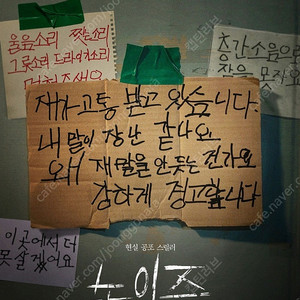 울음소리 짝는소리
그릇소리 드라이기소리
층간소음으로
잠을 못자요
재가 고통 받고 있습니다.
내 말이 장난 같나요
왜 재 말을 안 듣는 건가요
강하게 경고합니다
이곳에서 더
못 살겠어요
현실 공포 스릴러
노이즈